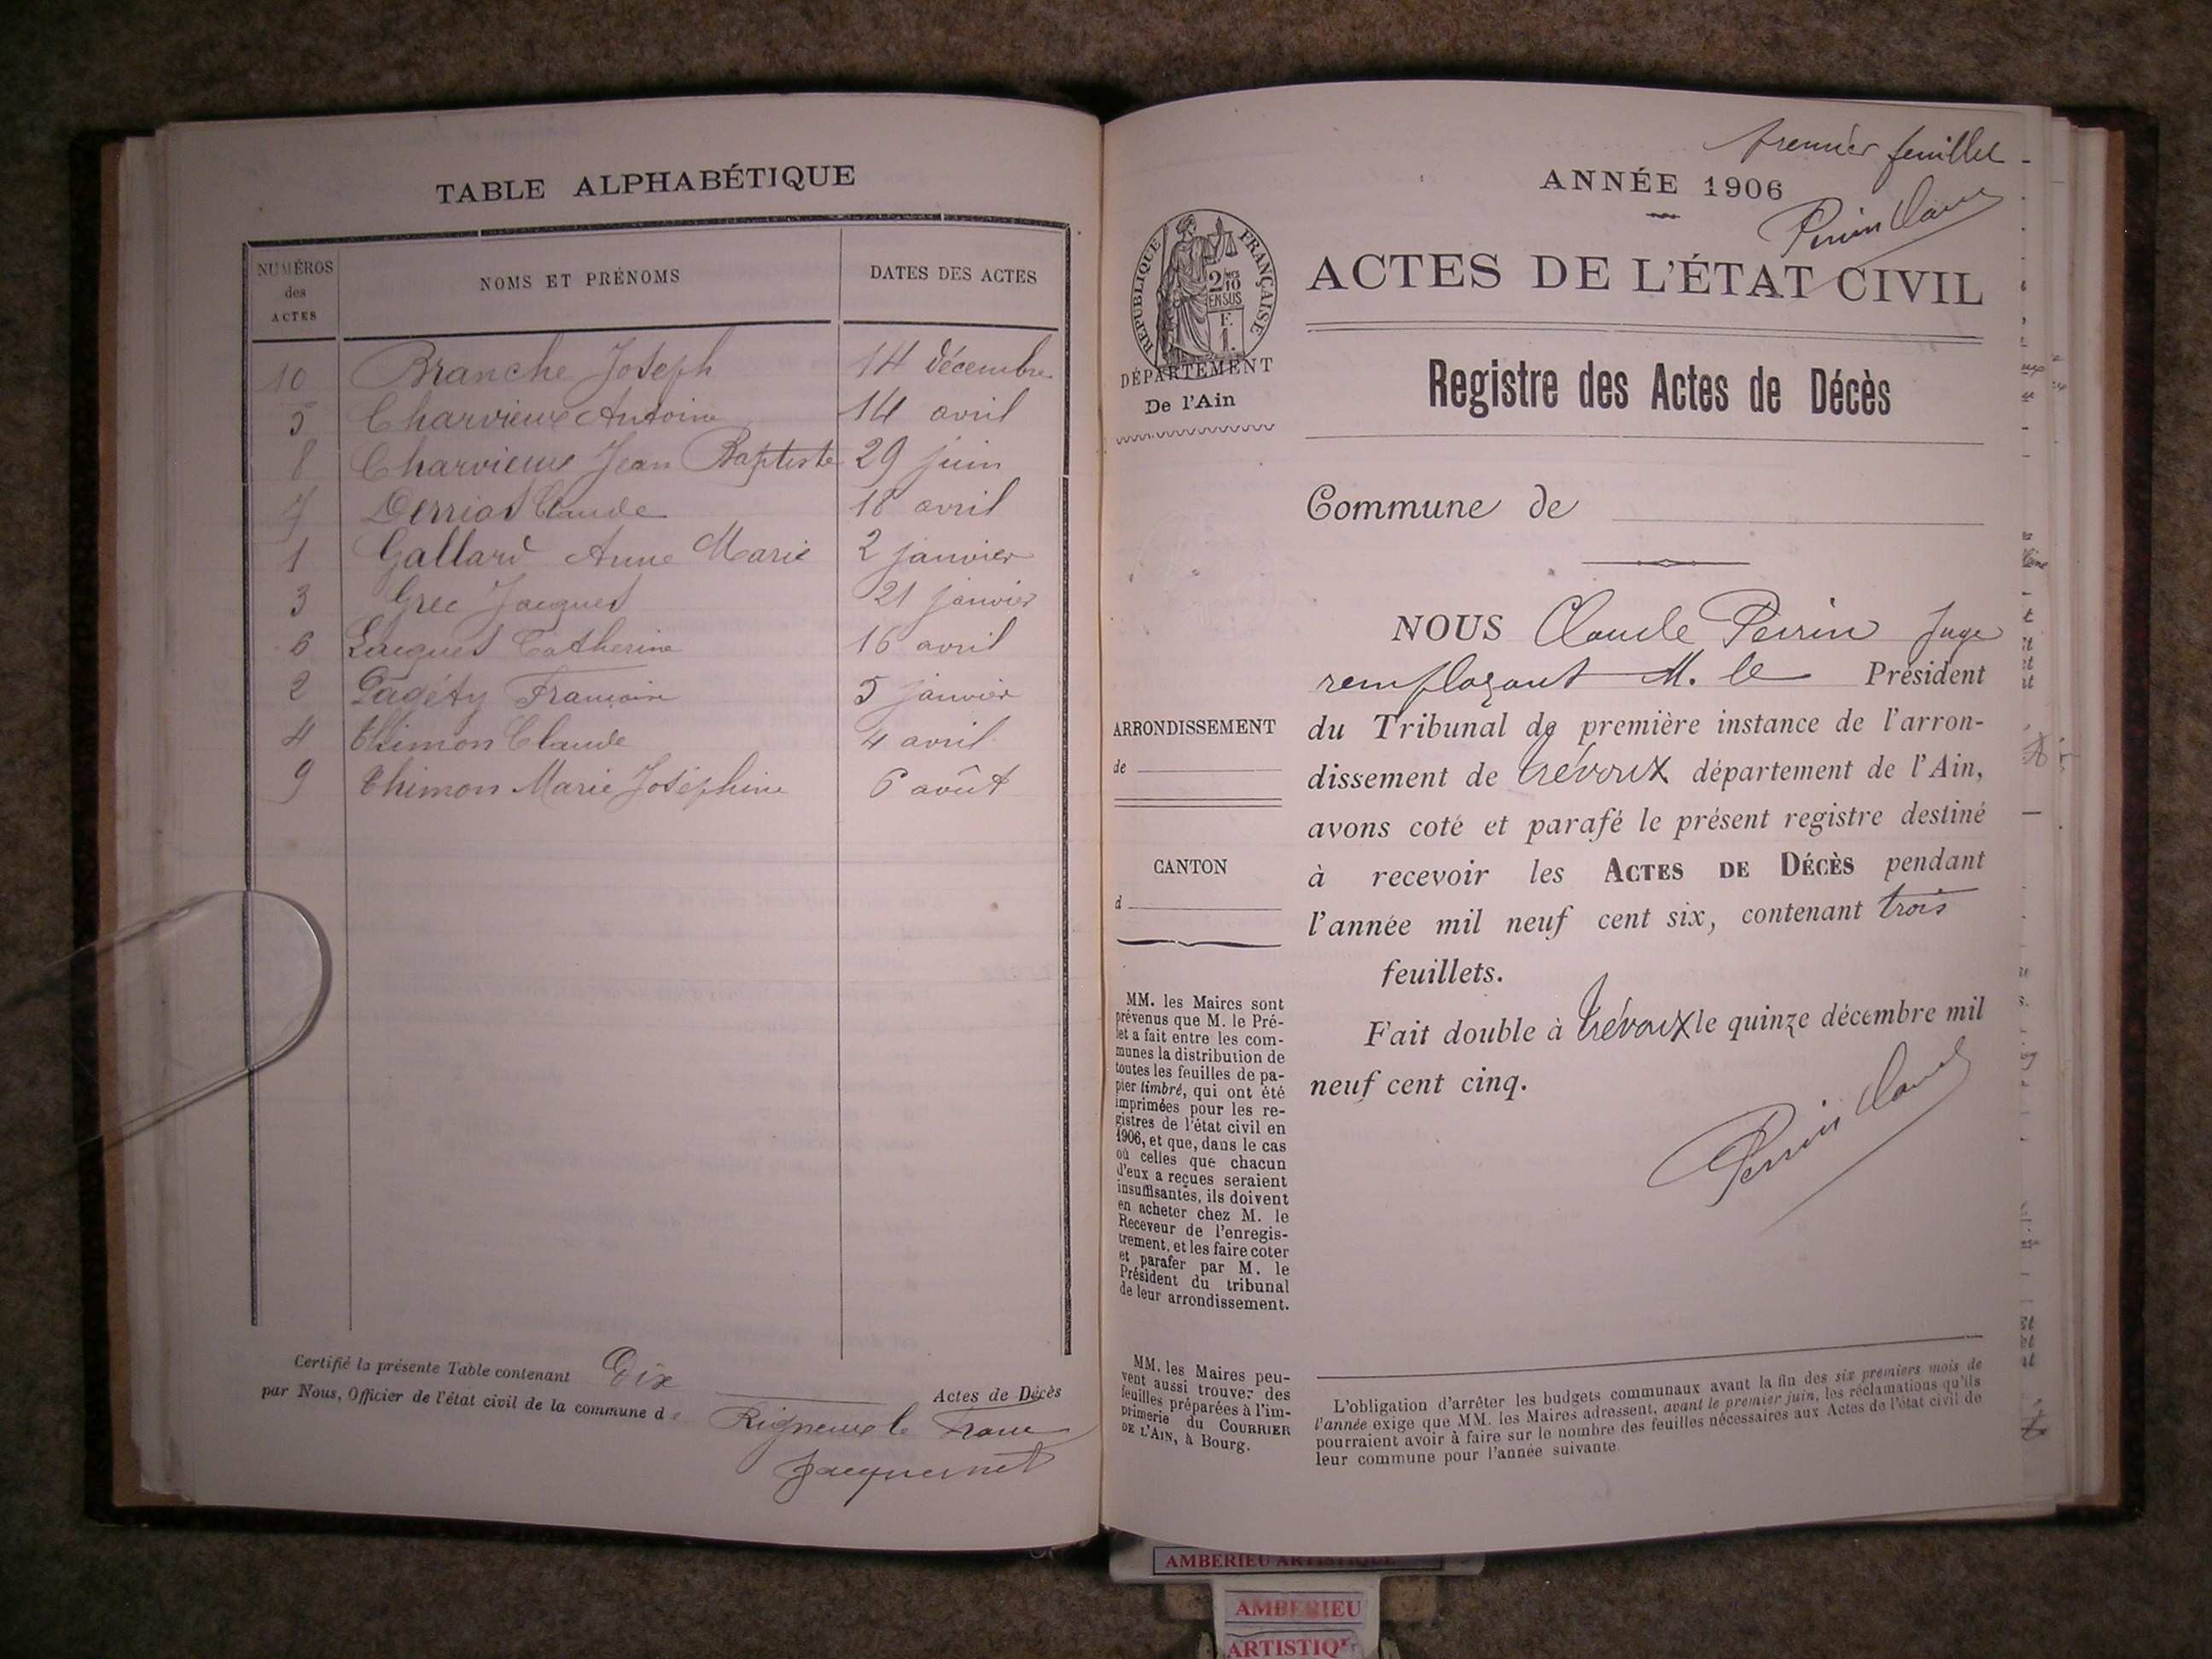 TABLE ALPHABÉTIQUE
NUMÉROS des ACTES NOMS ET PRÉNOMS DATES DES ACTES
10 Branche Joseph 14 décembre
5 Charvieux Antoine 14 avril
8 Charvieux Jean Baptiste 29 juin
7 Derriat Claude 18 avril
1 Gallard Anne Marie 2 janvier
3 Grec Jacques 21 janvier
6 Lacques Catherine 16 avril
2 Pagéty 5 janvier
4 Thimon Claude 4 avril
9 Thimon Marie Joséphine 6 août
Certifié la présente Table contenant Dix Actes de Décès
par Nous, Officier de l'état civil de la commune de Rigneux le Franc
Jacquemet
premier feuillet
ANNÉE 1906
Perrin Claude
RÉPUBLIQUE FRANÇAISE
2/10 EN SUS
F.
1.
ACTES DE L'ÉTAT CIVIL
DÉPARTEMENT
De l'Ain
Registre des Actes de Décès
Commune de
NOUS Claude Perrin Juge
remplaçant M. le Président
du Tribunal de première instance de l'arron-
dissement de Trévoux département de l'Ain,
avons coté et parafé le présent registre destiné
à recevoir les ACTES DE DÉCÈS pendant
l'année mil neuf cent six, contenant trois
feuillets.
Fait double à Trévoux le quinze décembre mil
neuf cent cinq.
Perrin Claude
ARRONDISSEMENT
de
CANTON
d
MM. les Maires sont
prévenus que M. le Pré-
fet a fait entre les com-
munes la distribution de
toutes les feuilles de pa-
pier timbré, qui ont été
imprimées pour les re-
gistres de l'état civil en
1906, et que, dans le cas
où celles que chacun
d'eux a reçues seraient
insuffisantes, ils doivent
en acheter chez M. le
Receveur de l'enregis-
trement, et les faire coter
et parafer par M. le
Président du tribunal
de leur arrondissement.
MM. les Maires peu-
vent aussi trouver des
feuilles préparées à l'im-
primerie du COURRIER
DE L'AIN, à Bourg.
L'obligation d'arrêter les budgets communaux avant la fin des six premiers mois de
l'année exige que MM. les Maires adressent, avant le premier juin, les réclamations qu'ils
pourraient avoir à faire sur le nombre des feuilles nécessaires aux Actes de l'état civil de
leur commune pour l'année suivante.
AMBERIEU ARTISTIQUE
AMBERIEU
ARTISTIQ